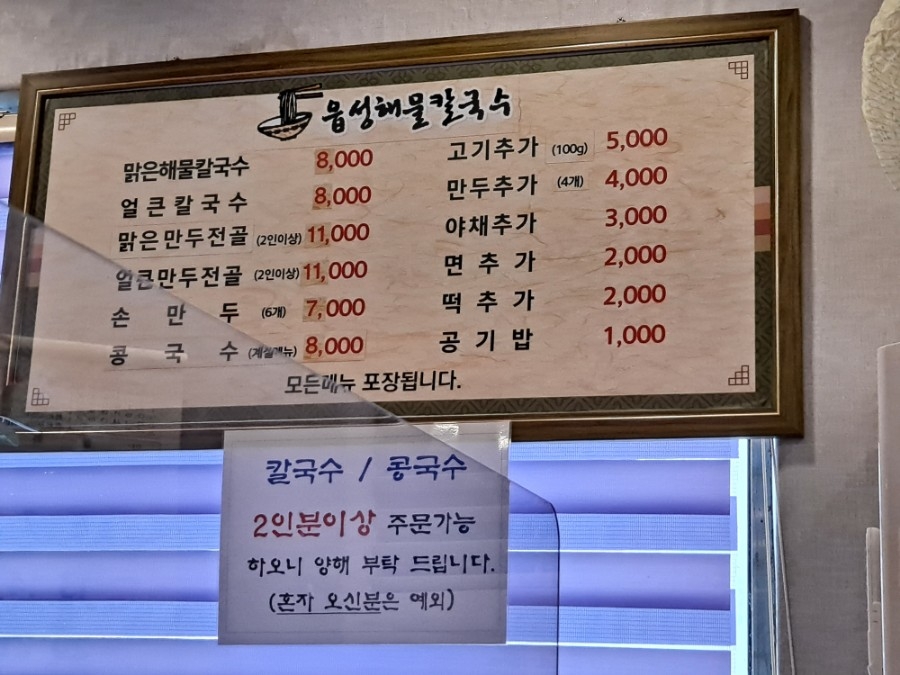 음성해물칼국수
맑은해물칼국수 8,000
얼큰칼국수 8,000
맑은만두전골 (2인이상) 11,000
얼큰만두전골 (2인이상) 11,000
손만두 (6개) 7,000
콩국수 (계절메뉴) 8,000
고기추가 (100g) 5,000
만두추가 (4개) 4,000
야채추가 3,000
면추가 2,000
떡추가 2,000
공기밥 1,000
모든메뉴 포장됩니다.
칼국수 / 콩국수
2인분이상 주문가능
하오니 양해 부탁 드립니다.
(혼자 오신분은 예외)